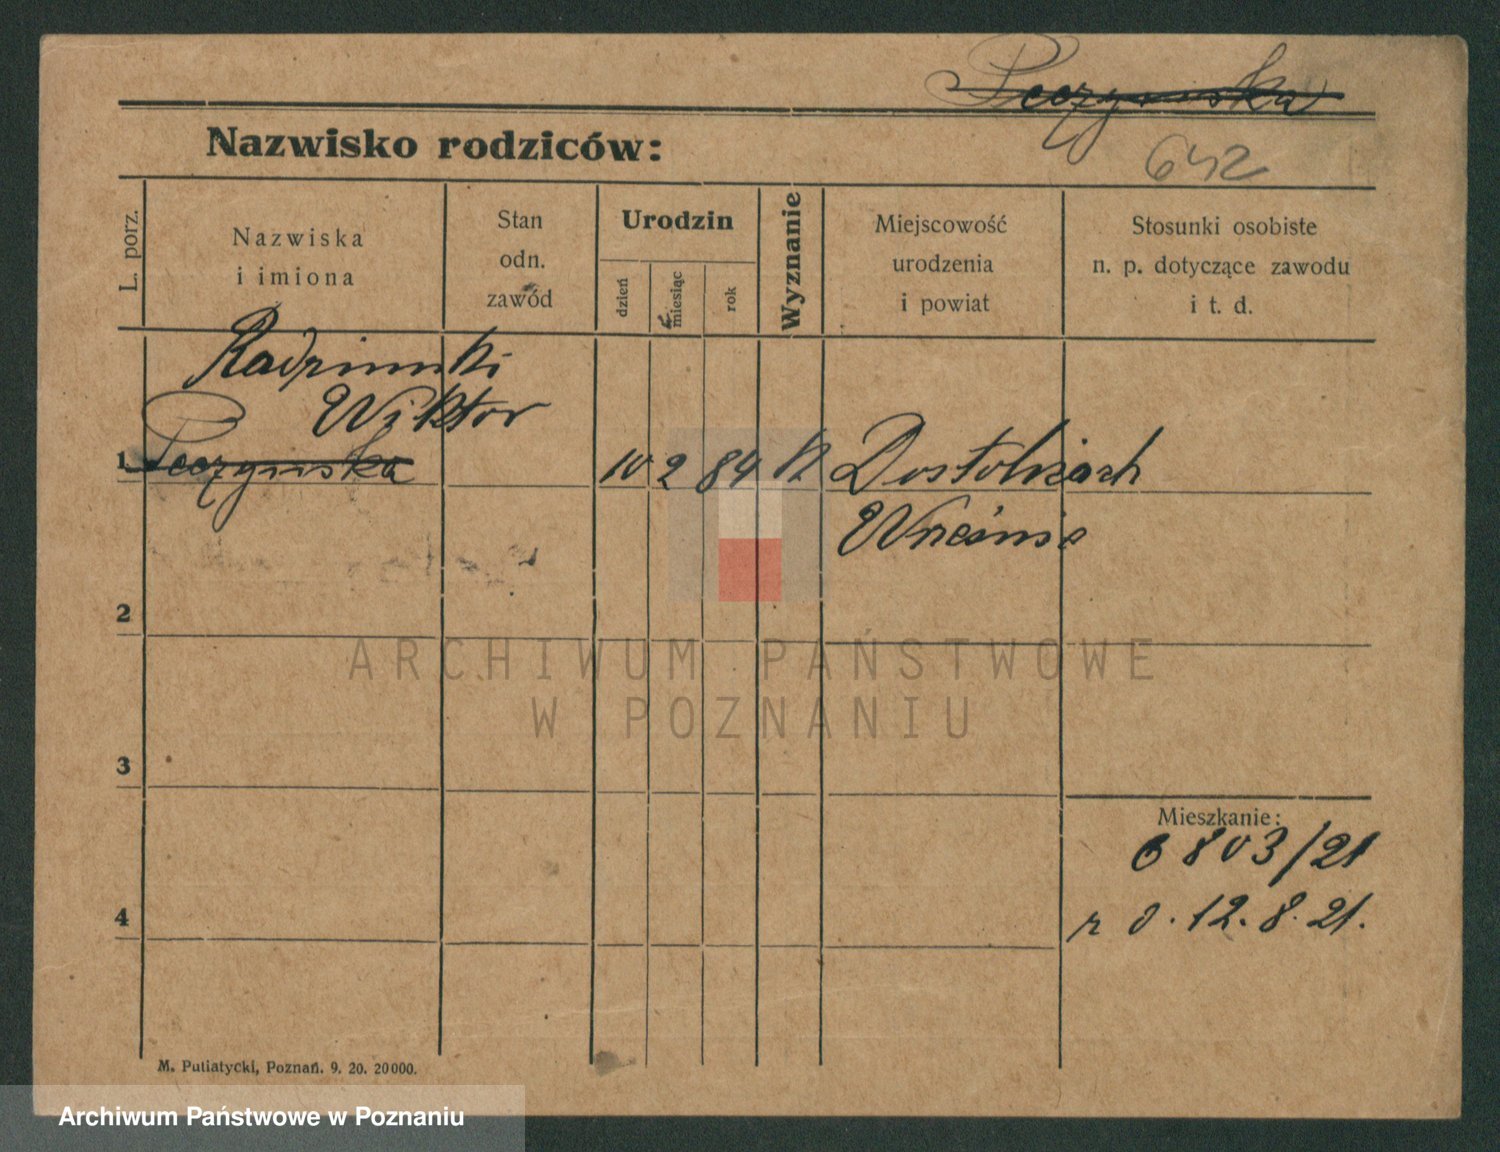 Peczyńska
Nazwisko rodziców:
642
L. porz.
Nazwiska
i imiona
Stan
odn.
zawód
Urodzin
dzień
miesiąc
rok
Wyznanie
Miejscowość
urodzenia
i powiat
Stosunki osobiste
n. p. dotyczące zawodu
i t. d.
Radzimski
Wiktor
1 Peczyńska 10 2 84 k
Września
2
3
4
ARCHIWUM PAŃSTWOWE
W POZNANIU
Mieszkanie:
6803/21
r d. 12. 8. 21.
M. Putiatycki, Poznań. 9. 20. 20000.
Archiwum Państwowe w Poznaniu